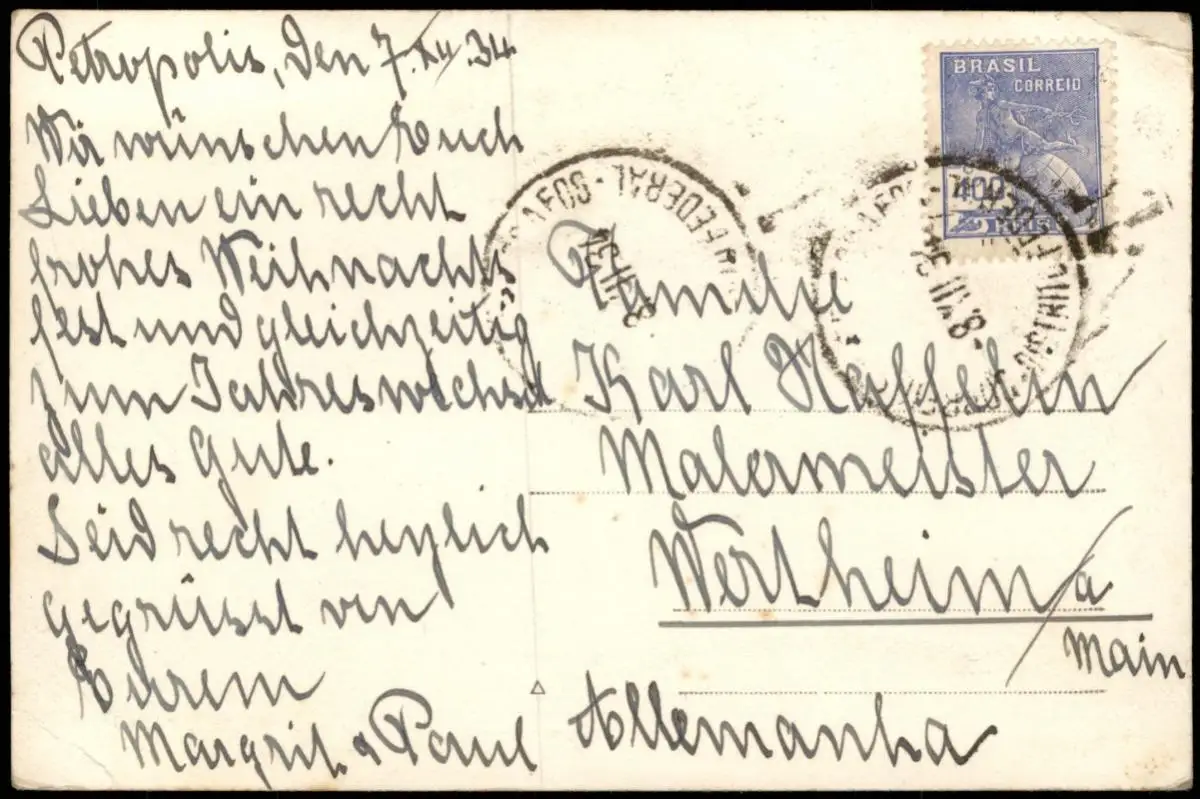 Petropolis, den 7.XII.34
Wir wünschen Euch
Lieben ein recht
frohes Weihnachts
fest und gleichzeitig
zum Jahreswechsel
alles Gute.
Seid recht herzlich
gegrüsst von
Eurem
Margrit & Paul
BRASIL
CORREIO
400
REIS
FEDERAL
8 XII 34
DISTRICTO FEDERAL
8 XII 34
Familie
Karl
Malermeister
Wertheim a/
Main
Allemanha